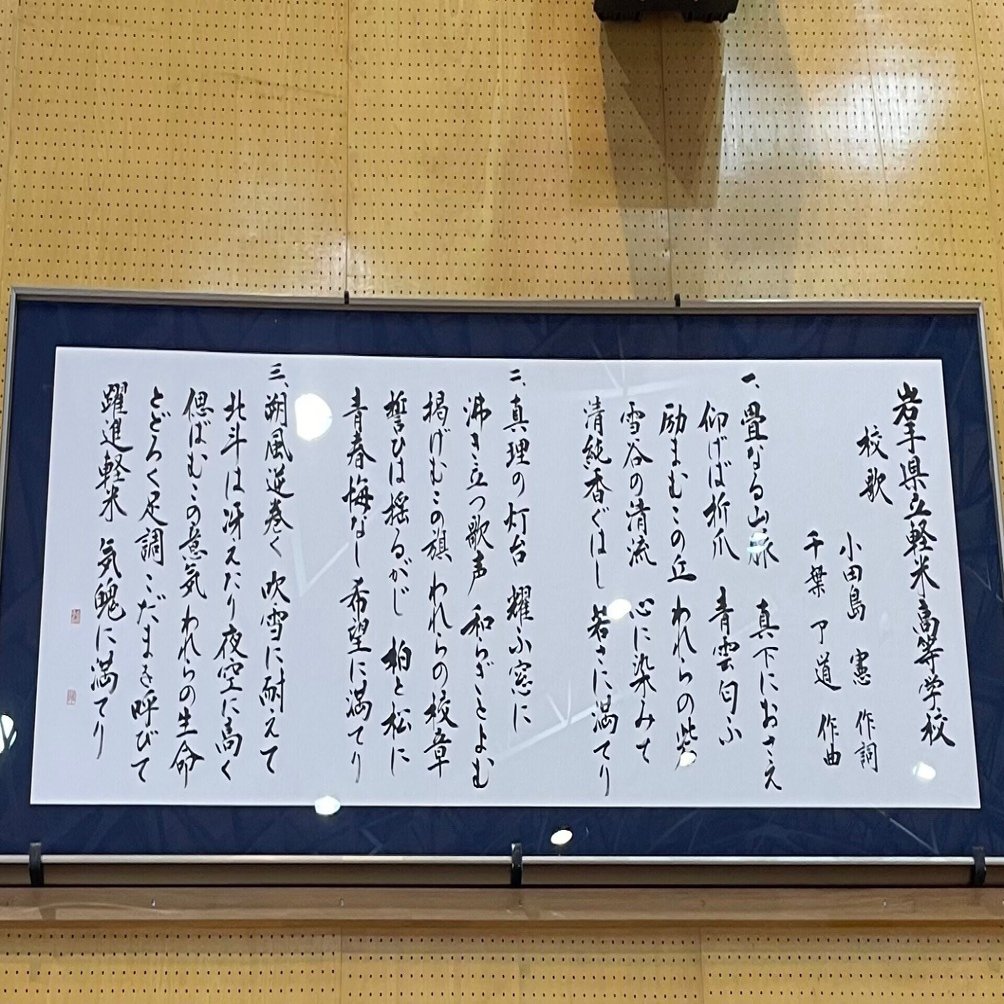 岩手県立軽米高等学校
校歌
小田島 憲 作詞
千葉 了道 作曲
一、畳なる山脈 真下におさえ
仰げば折爪 青雲匂ふ
励まむこの丘 われらの
雪谷の清流 心に染みて
清純香ぐはし 若さに満てり
二、真理の灯台 耀ふ窓に
沸き立つ歌声 和らぎとよむ
掲げむこの旗 われらの校章
誓ひは揺るがじ 柏と松に
青春悔なし 希望に満てり
三、朔風逆巻く 吹雪に耐えて
北斗は冴えたり 夜空に高く
偲ばむこの意気 われらの生命
とどろく足調 こだまを呼びて
躍進軽米 気魄に満てり